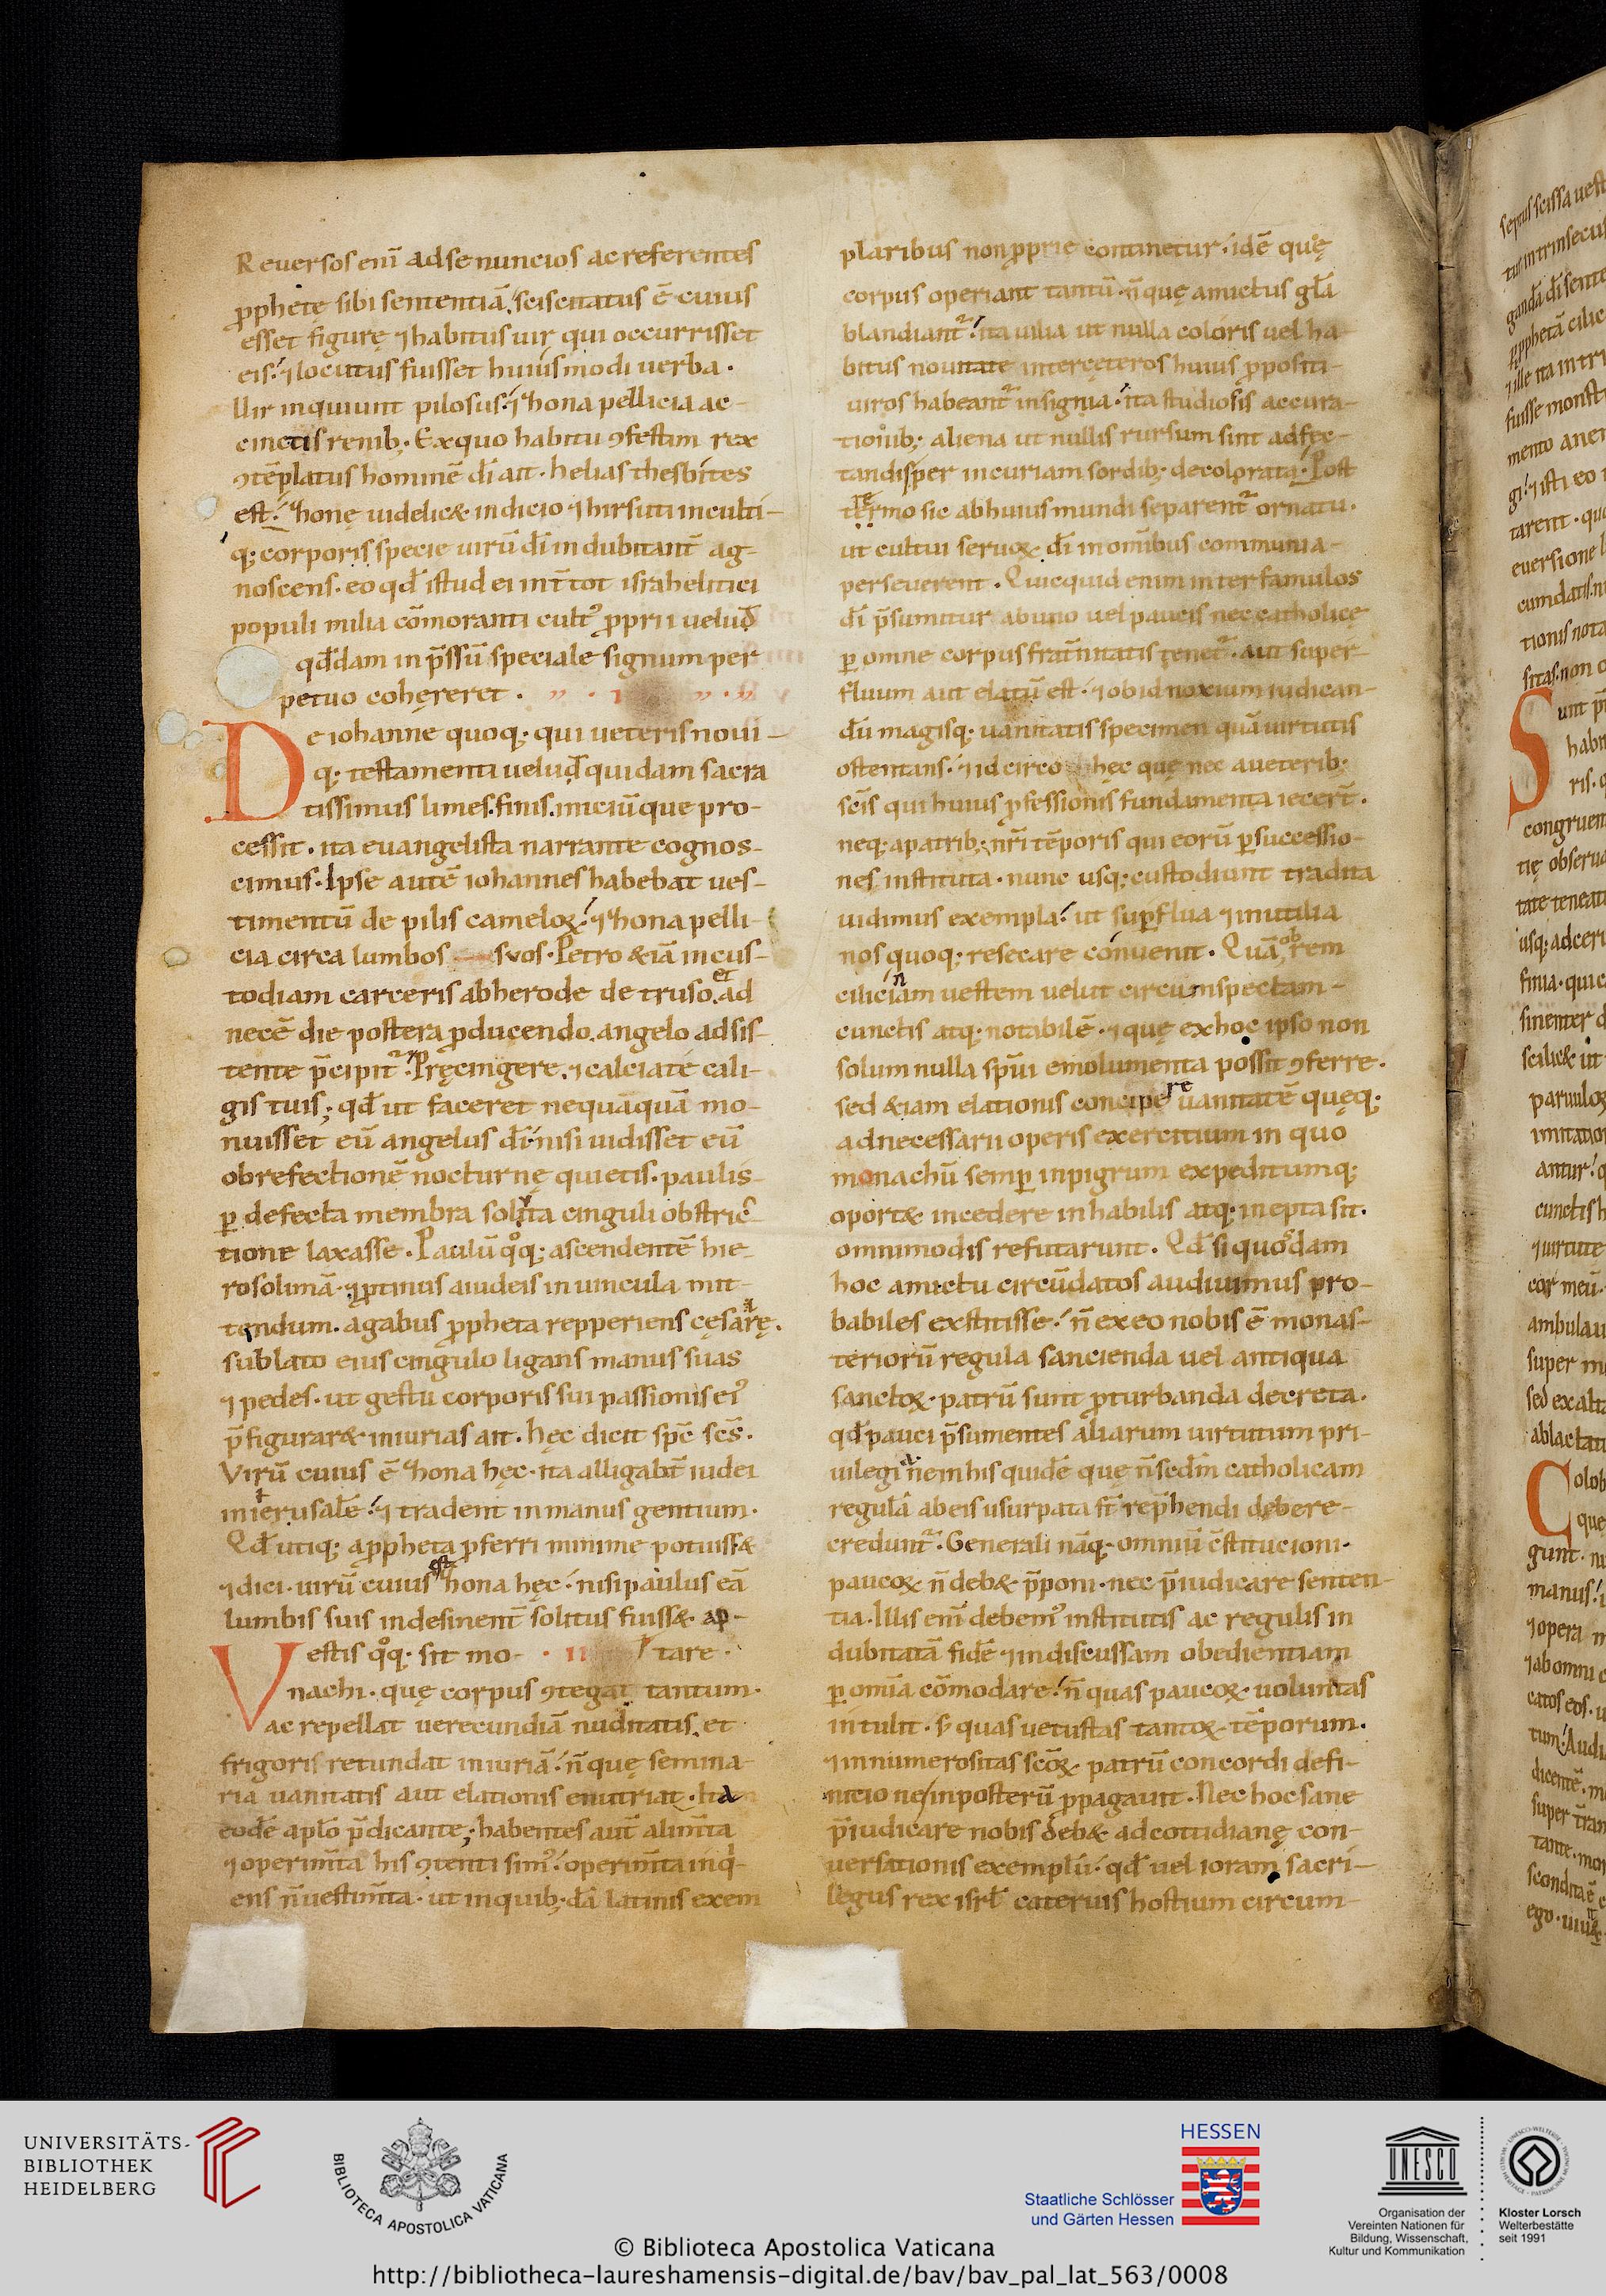 Reuersos eni̅ ad se nuncios ac referentes
ꝓphetę sibi sententia̅. sciscitatus e̅ cuius
esset figurę ⁊ habitus uir qui occurrisset
eis. ⁊ locutus fuisset huiusmodi uerba.
Uir inquiunt pilosus. ⁊ zona pellicia ac-
cinctis renib; . Ex quo habitu ꝯfestim rex
ꝯte̅platus homine̅ di̅ ait. helias thesbites
est. zonę uidelic& indicio ⁊ hirsuti inculti-
q; corporis specie uiru̅ di̅ indubitant̅ ag-
noscens. eo qd̅ istud ei int̅ tot israhelitici
populi milia co̅moranti cult᷒ ꝓprii uelud
qd̅dam inp̅ssu̅ speciale signum per
petuo cohęreret.
De iohanne quoq; qui ueteris noui-
q; testamenti uelud quidam sacra
tissimus limes. finis. iniciu̅que pro-
cessit. ita euangelista narrante cognos-
cimus. Ipse aute̅ iohannes habebat ues-
timentu̅ de pilis cameloꝝ. ⁊ zona pelli-
cia circa lumbos suos. Petro &ia̅ in cus-
todiam carceris ab herode detruso. et ad
nece̅ die postera ꝓducendo. angelo adsis-
tente p̅cipit᷑. Pręcingere. ⁊ calciate cali-
gis tuis; qd̅ ut faceret nequaqua̅ mo-
nuisset eu̅ angelus di̅. nisi uidisset eu̅
ob refectione̅ nocturnę quietis. paulis-
ꝑ defecta membra solita cinguli obstric-
tione laxasse. Paulu̅ qͦq; ascendente̅ hie-
rosolima̅. ⁊ ꝓtinus a iudeis in uincula mit-
tendum. agabus ꝓpheta repperiens cęsarę.
sublato eius cingulo ligans manus suas
⁊ pedes. ut gestu corporis sui passionis ei᷒
p̅figurar& iniurias ait. hęc dicit sp̅c sc̅s.
Viru̅ cuius e̅ zona hęc. ita alligabt̅ iudei
in ierusale̅. ⁊ tradent in manus gentium.
Qd̅ utiq; a ꝓpheta ꝓferri minime potuiss&
⁊ dici. uiru̅ cuius est zona hęc. nisi paulus ea̅
lumbis suis indesinent̅ solitus fuiss& ap-
Vestis qͦq; sit mo- · II tare.
nachi. quę corpus ꝯtegat tantum.
ac repellat uerecundia̅ nuditatis. et
frigoris retundat iniuria̅. n̅ quę semina-
ria uanitatis aut elationis enutriat. Ita
eode̅ apl̅o p̅dicante; habentes aut̅ alim̅ta
⁊ operim̅ta his ꝯtenti sim᷒. operim̅ta inq̅-
ens n̅ uestim̅ta. ut in quib;da̅ latinis exem
plaribus non ꝓprie continetur. ide̅ quę
corpus operiant tantu̅. n̅ quę amictus gl̅a
blandiant᷑. ita uilia ut nulla coloris uel ha-
bitus nouitate inter cęteros huius ꝓpositi-
uiros habeant᷑ insignia. ita studiosis accura-
tionib; aliena ut nullis rursum sint adfec-
tandis per incuriam sordib; decolorata. Post
re termo sic ab huius mundi separent᷑ ornatu.
ut cultui seruoꝝ di̅ in omnibus communia
perseuerent. Quicquid enim inter famulos
di̅ p̅sumitur ab uno uel paucis nec catholice
ꝑ omne corpus frat̅nitatis tenet᷑. aut super-
fluum aut elatu̅ est. ⁊ ob id noxium iudican-
du̅ magisq; uanitatis specimen qua̅ uirtutis
ostentans. ⁊ idcirco hęc quę nec a ueterib;
sc̅is qui huius ꝓfessionis fundamenta iecert̅.
neq; a patrib; nr̅i te̅poris qui eoru̅ ꝑ successio-
nes instituta. nunc usq; custodiunt tradita
uidimus exempla. ut supflua ⁊ inutilia
nos quoq; resecare conuenit. Qua̅ ob rem
ciliciam uestem uelut circumspectam-
cunctis atq; notabile̅. ⁊ quę ex hoc ipso non
solum nulla sp̅ui emolumenta possit ꝯferre.
sed &iam elationis concipere uanitate̅ quęq;
ad necessarii operis exercitium in quo
monachu̅ semꝑ inpigrum expeditumq;
oport& incedere inhabilis atq; inepta sit.
omnimodis refutarunt. Qd̅ si quosdam
hoc amictu circu̅datos audiuimus pro-
babiles exstitisse. n̅ ex eo nobis e̅ monas-
terioru̅ regula sancienda uel antiqua
sanctoꝝ. patru̅ sunt ꝓturbanda decreta.
qd̅ pauci p̅sumentes aliarum uirtutum pri-
uilegia nem his quide̅ quę n̅ scd̅m catholicam
regula̅ ab eis usurpata st̅ rep̅hendi debere-
credunt᷑. Generali na̅q; omniu̅ c̅stitucioni.
paucoꝝ n̅ deb& p̅poni. nec p̅iudicare senten-
tia. Illis eni̅ debem᷒ institutis ac regulis in
dubitata̅ fide̅ ⁊ indiscussam obedientiam
ꝑ omia̅ co̅modare. n̅ quas paucoꝝ uoluntas
intulit. s; quas uetustas tantoꝝ te̅porum.
⁊ innumerositas sc̅oꝝ patru̅ concordi defi-
nicione in posteru̅ ꝓpagauit. Nec hoc sane
p̅iudicare nobis deb& ad cottidianę con-
uersationis exemplu̅. qd̅ uel ioram sacri-
legus rex isrl̅ cateruis hostium circum-
UNIVERSITÄTS-
BIBLIOTHEK
HEIDELBERG
BIBLIOTECA APOSTOLICA VATICANA
HESSEN
Staatliche Schlösser
und Gärten Hessen
UNESCO
Organisation der
Vereinten Nationen für
Bildung, Wissenschaft,
Kultur und Kommunikation
Kloster Lorsch
Welterbestätte
seit 1991
© Biblioteca Apostolica Vaticana
http://bibliotheca-laureshamensis-digital.de/bav/bav_pal_lat_563/0008